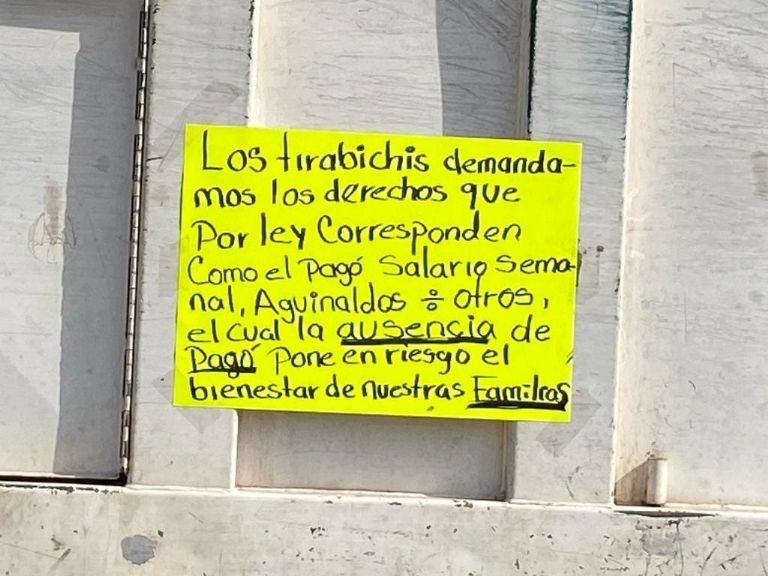 Los tirabichis demanda-
mos los derechos que
Por ley Corresponden
Como el Pagó Salario Sema-
nal, Aguinaldos ÷ otros,
el cual la ausencia de
Pagó Pone en riesgo el
bienestar de nuestras Familias